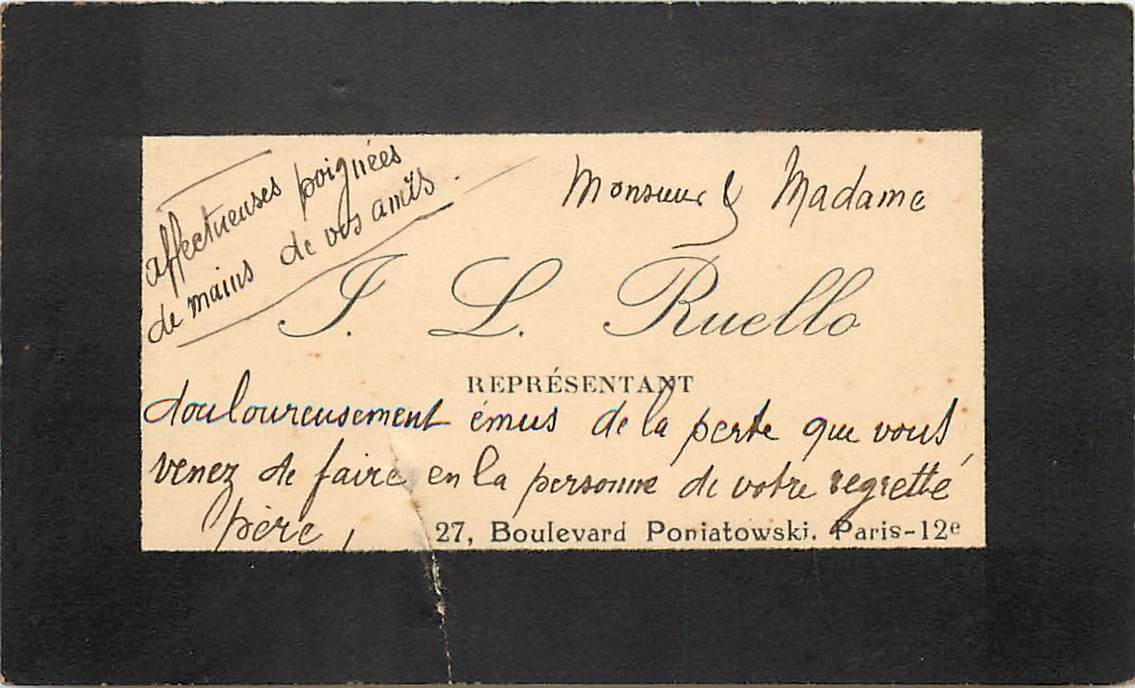 Monsieur & Madame
J. L. Ruello
REPRÉSENTANT
douloureusement émus de la perte que vous
venez de faire en la personne de votre regretté
père,
27, Boulevard Poniatowski. Paris-12e
affectueuses poignées
de mains de vos amis.